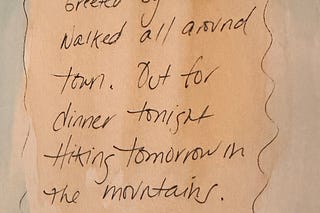 Greeted by
Walked all around
town. Out for
dinner tonight
Hiking tomorrow in
the mountains.